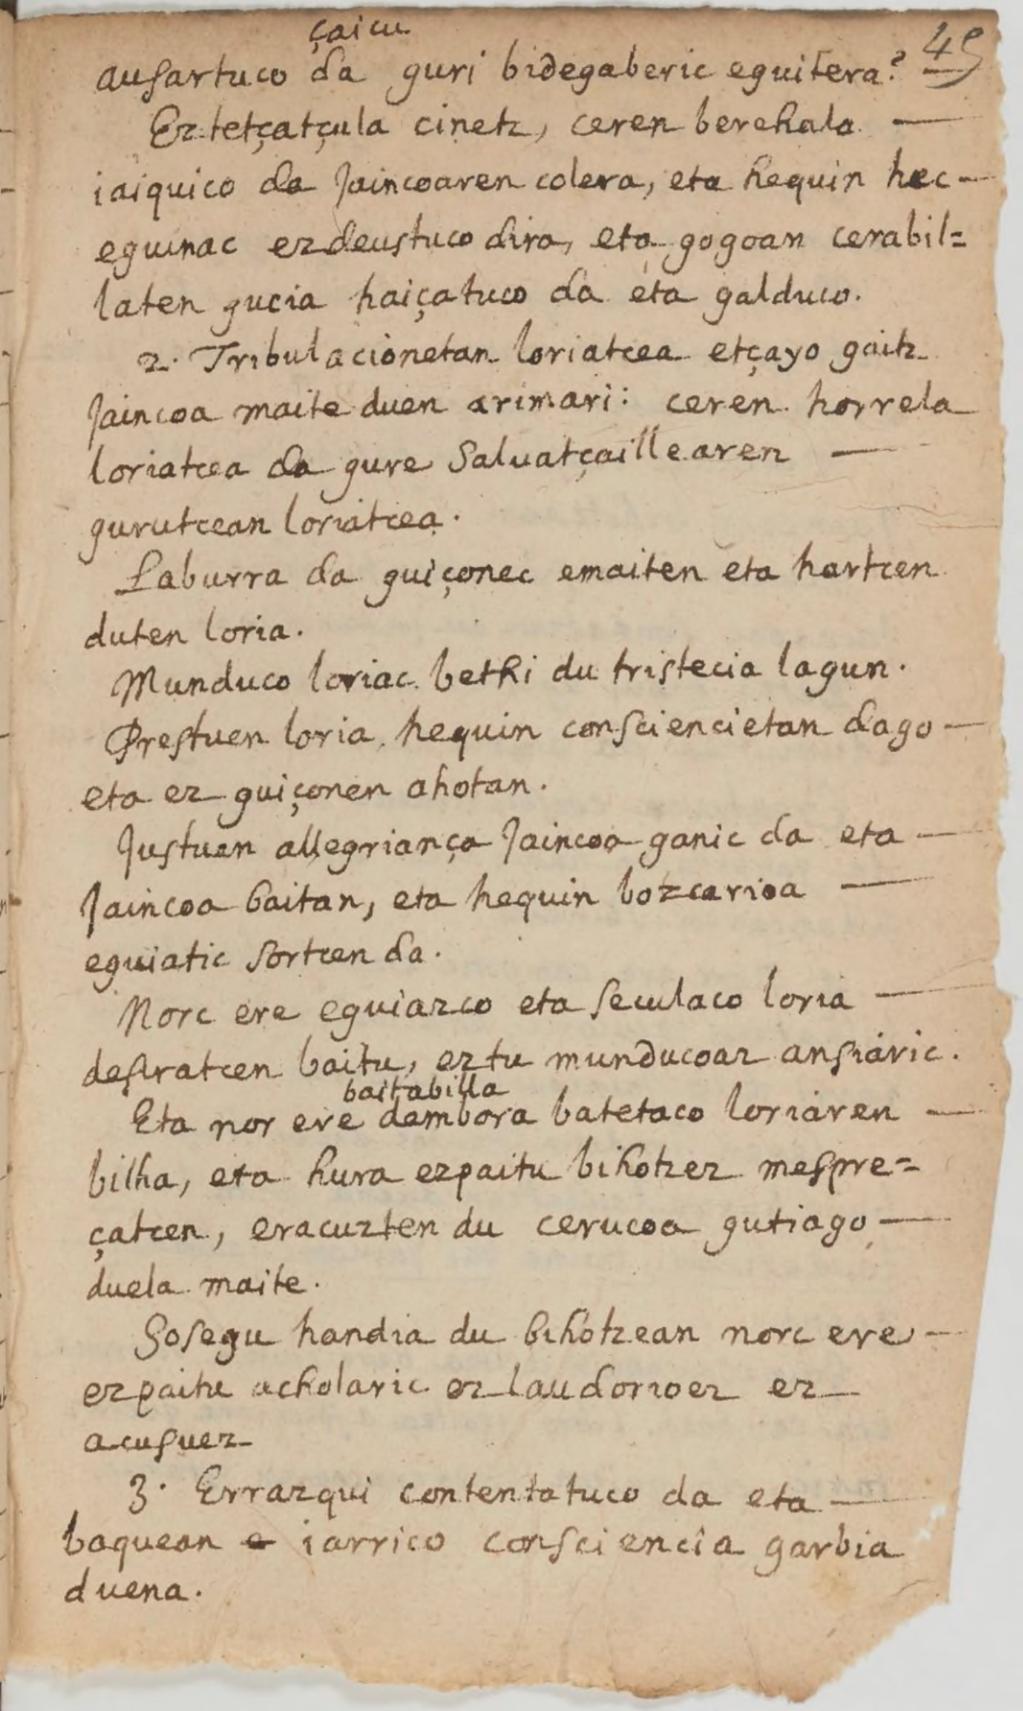 çaicu 49
ausartuco da guri bidegaberic eguitera?
Ez tetçatçula cinetz, ceren berehala —
iaiquico da Jaincoaren colera, eta hequin hec —
eguinac ezdeustuco dira, eta gogoan cerabil=
laten gucia haiçatuco da eta galduco.
2. Tribulacionetan loriatcea etçayo gaitz
Jaincoa maite duen arimari: ceren horrela
loriatcea da gure Saluatçaillearen —
gurutcean loriatcea.
Laburra da guiçonec emaiten eta hartcen
duten loria.
Munduco loriac bethi du tristecia lagun.
Prestuen loria hequin consciencietan dago —
eta ez guiçonen ahotan.
Justuen allegriança Jaincoa ganic da eta —
Jaincoa baitan, eta hequin bozcarioa —
eguiatic sortcen da.
Norc ere eguiazco eta seculaco loria —
desiratcen baitu, eztu munducoaz ansiaric.
baitabilla
Eta nor ere dembora batetaco loriaren —
bilha, eta hura ezpaitu bihotzez mespre=
çatcen, eracuzten du cerucoa gutiago —
duela maite.
Sosegu handia du bihotzean norc ere —
ezpaitu acholaric ez laudorioez ez —
acusuez
3. Errazqui contentatuco da eta —
baquean e iarrico consciencia garbia
duena.